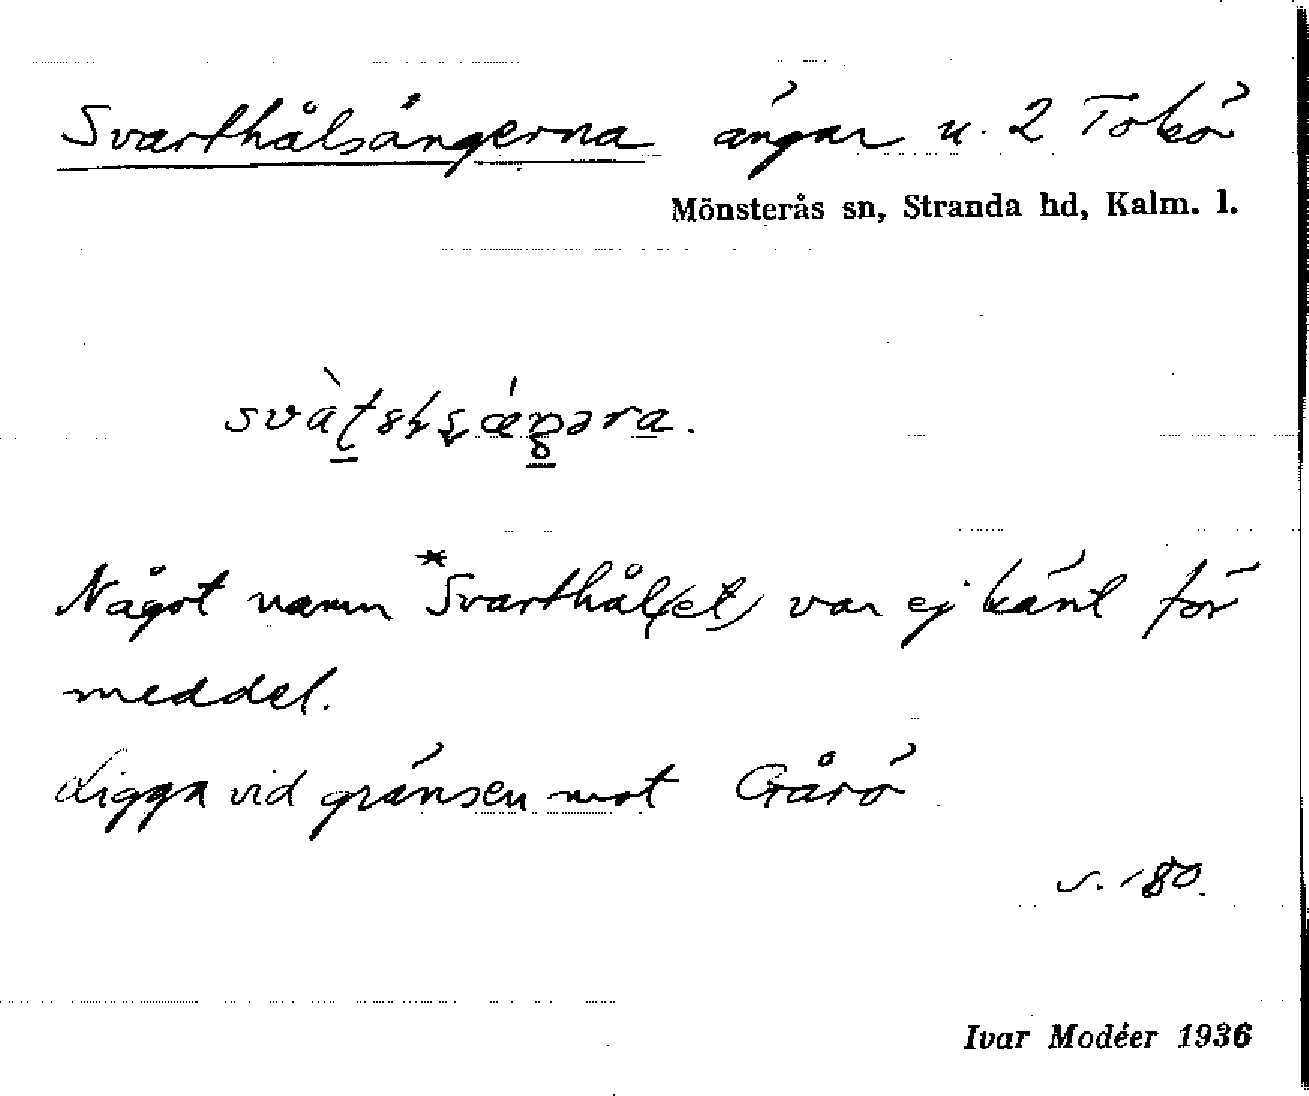 Svarthålsängerna ängar u. 2 Tokö
Mönsterås sn, Stranda hd, Kalm. l.
Något namn *Svarthål(et) var ej känt för
meddel.
Ligga vid gränsen mot Gårö
s. 180.
Ivar Modéer 1936